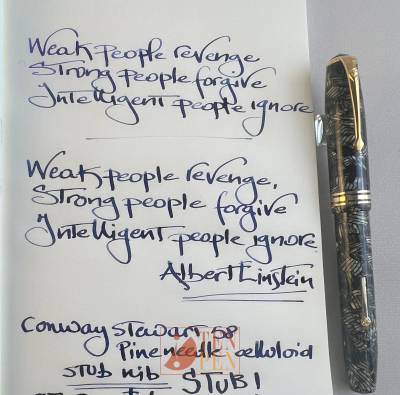 Weak people revenge
Strong people forgive
Intelligent people ignore
Weak people revenge,
Strong people forgive
Intelligent people ignore.
Albert Einstein
Conway Stewart 58
Pineneedle celluloid
STUB nib STUB!